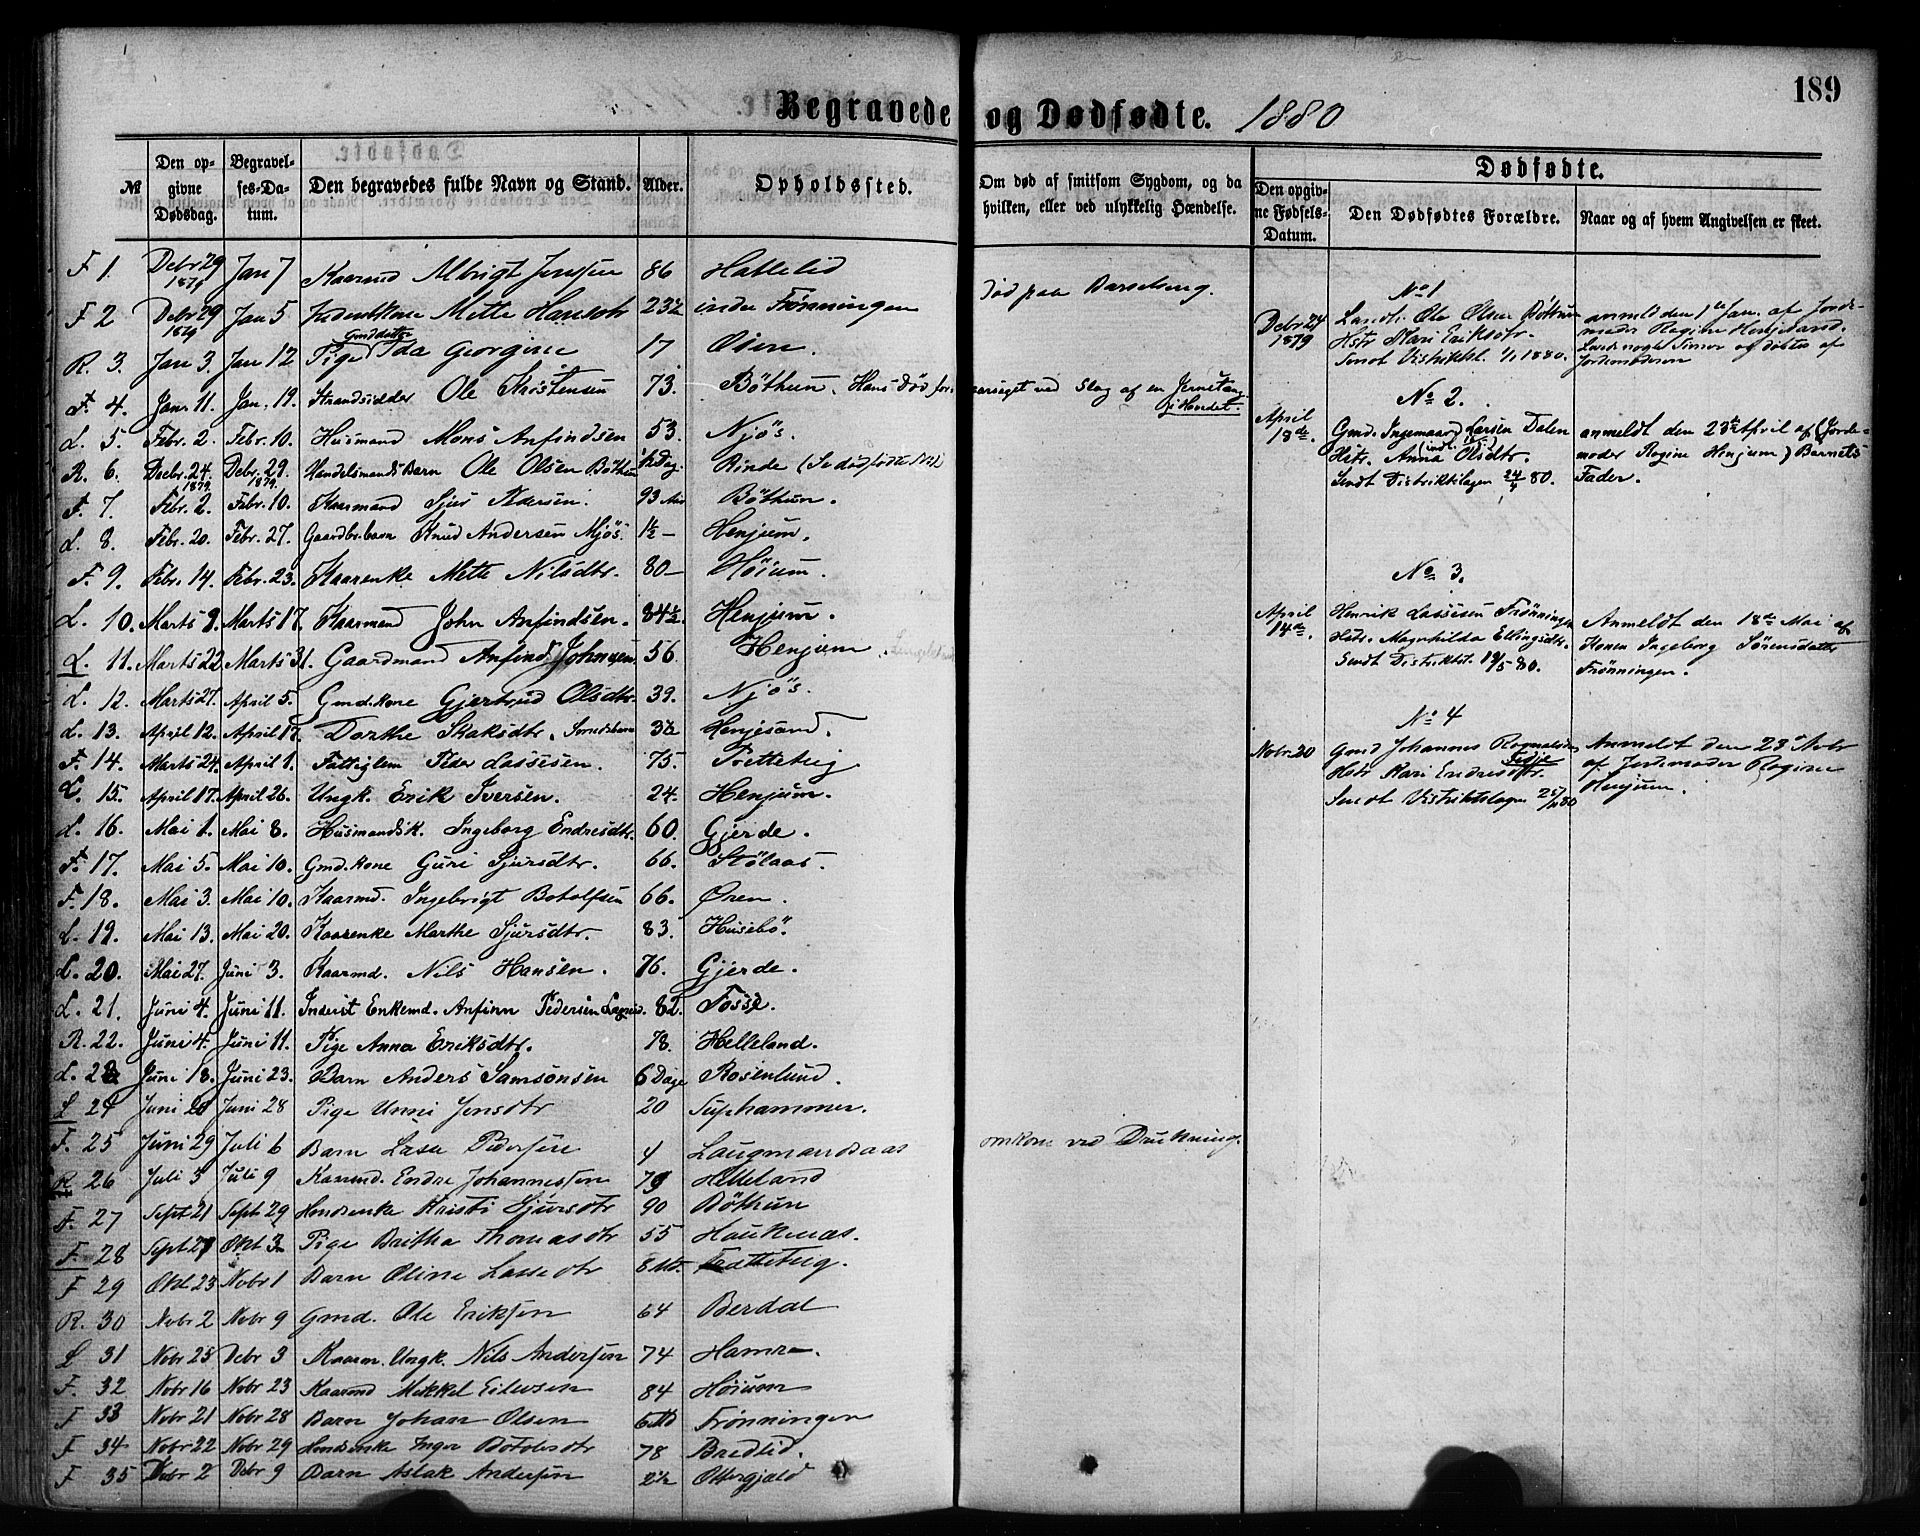 189
Begravede og Dødfødte. 1880
№
Den opgivne Dødsdag.
Begravelses-Datum.
Den begravedes fulde Navn og Stand.
Alder.
Opholdssted.
Om død af smitsom Sygdom, og da hvilken, eller ved ulykkelig Hændelse.
Dødfødte.
Den opgivne Fødsels-Datum.
Den Dødfødtes Forældre.
Naar og af hvem Angivelsen er skeet.
F 1. Debr 29 1879 Jan 7 Kaarmd Albrigt Jensen 86 Hattelid
F 2 Debr 29 1879 Jan 5 Mette Hansdtr 23½ indre Frønningen død paa Barselseng.
R. 3. Jan 3. Jan 12 Pige Gmddatter Ida Georgine 17 Øien.
F. 4. Jan. 11. Jan. 19. Strandsidder Ole Kristensen 73. Böthun. Hans Død foraarsaget ved Slag af en Jernstang i Hovedet.
L. 5. Febr. 2. Febr. 10. Husmand Mons Anfindsen 53. Njøs.
R. 6. Decbr. 24. 1879. Debr. 29. 1879. Handelsmands Barn Ole Olsen Böthun ½ Dag. Rinde (Se dødfødte №1)
F. 7. Febr. 2. Febr. 10. Kaarmand Sjur Pedersen. 93 Böthun.
L. 8. Febr. 20. Febr. 27. Gaardbr.barn Knud Andersen Njøs. 1½ — Henjum.
F. 9. Febr. 14. Febr. 23. Kaarenke Mette Nilsdtr. 80 — Høium.
L. 10. Marts 9. Marts 17. Kaarmand John Anfindsen. 84½ Henjum.
L. 11. Marts 22 Marts 31. Gaardmand Anfind Johnsen 56. Henjum.
L. 12. Marts 27. April 5. Gmd.kone Gjertrud Olsdtr. 39. Njøs.
L. 13. April 12. April 17. Dorthe Slaksdtr. 3½ Henjesand.
F. 14. Marts 24. April 1. Fattiglem Peder Lassesen. 75. Tretteteig
L. 15. April 17. April 26. Ungk. Erik Iversen. 24. Henjum.
L. 16. Mai 1. Mai 8. Husmandsk. Ingeborg Endresdtr. 60. Gjerde.
F. 17. Mai 5. Mai 10. Gmd.kone Guri Sjursdtr. 66. Stölaas.
F. 18. Mai 3. Mai 10. Kaarmd. Ingebrigt Botolfsen 66. Øren.
L. 19. Mai 13. Mai 20. Kaarenke Marthe Sjursdtr. 83. Husebö.
L. 20. Mai 27. Juni 3. Kaarmd. Nils Hansen. 76. Gjerde.
L. 21. Juni 4. Juni 11. Inderst Enkemd. Anfinn Pedersen 82. Fosse.
R. 22. Juni 4. Juni 11. Pige Anna Eriksdtr. 78. Helleland.
L. 23 Juni 18. Juni 23. Barn Anders Samsonsen 6 Dage Rosenlund.
L 24 Juni 20 Juni 28 Pige Unni Jensdtr 20 Suphammer.
F. 25 Juni 29 Juli 6 Barn Lasse Pedersen 4 Laugmandsaas omkom ved Drukning.
R 26 Juli 3 Juli 9 Kaarmd. Endre Johannessen 79 Helleland
F. 27 Sept 21 Sept 29 Kristi Sjursdtr 90 Böthun
F. 28 Sept 27 Okt 3 Pige Britha Thomasdtr 55 Haukenæs.
F 29 Okt 23 Nobr 1 Barn Oline Lassedtr 8 Md. Tretteteig.
R. 30 Nobr 2 Nobr 9 Gmd. Ole Eriksen 64 Berdal
L 31 Nobr 25 Debr 3 Kaarm. Ungk. Nils Andersen 74 Hamre.
F. 32 Nobr 16 Nobr 23 Kaarmd Mikkel Eilevsen 84 Høium
F 33 Nobr 21 Nobr 28 Barn Johan Olsen 6 Md Frønningen
F 34 Nobr 22 Nobr 29 Inger Botolvsdtr 78 Bredlid.
F 35 Debr 2 Debr 9 Barn Aslak Andersen 2½ Ottergjæld
№ 1
Debr 24 1879
Landh. Ole Olsen Böthun
Hstr Kari Eriksdtr.
Sendt Distriktsl. 1/1 1880.
anmeldt den 1ste Jan. af Jordemoder Regine Henjesand.
Jordemoderen
№ 2.
April 18de
Gmd. Ingemaar Larsen Dalen
Hstr. Anna Olsdtr.
Sendt Distriktslægen 24/4 80.
anmeldt den 23de April af (Jordemoder Regine Henjum) Barnets Fader.
№ 3.
April 14de.
Henrik Lassesen Frønningen
Hstr. Magnhilda Ellingsdtr.
Sendt Distriktsl. 19/5 80.
Anmeldt den 18de Mai af
Konen Ingeborg Sørensdatter
Frønningen.
№ 4
Nobr. 20
Gmd Johannes Rognaldsen Fedje
Hstr Kari Endresdtr.
Sendt Distriktslægen 25/11 80
Anmeldt den 23de Nobr
af Jordemoder Regine
Henjum.